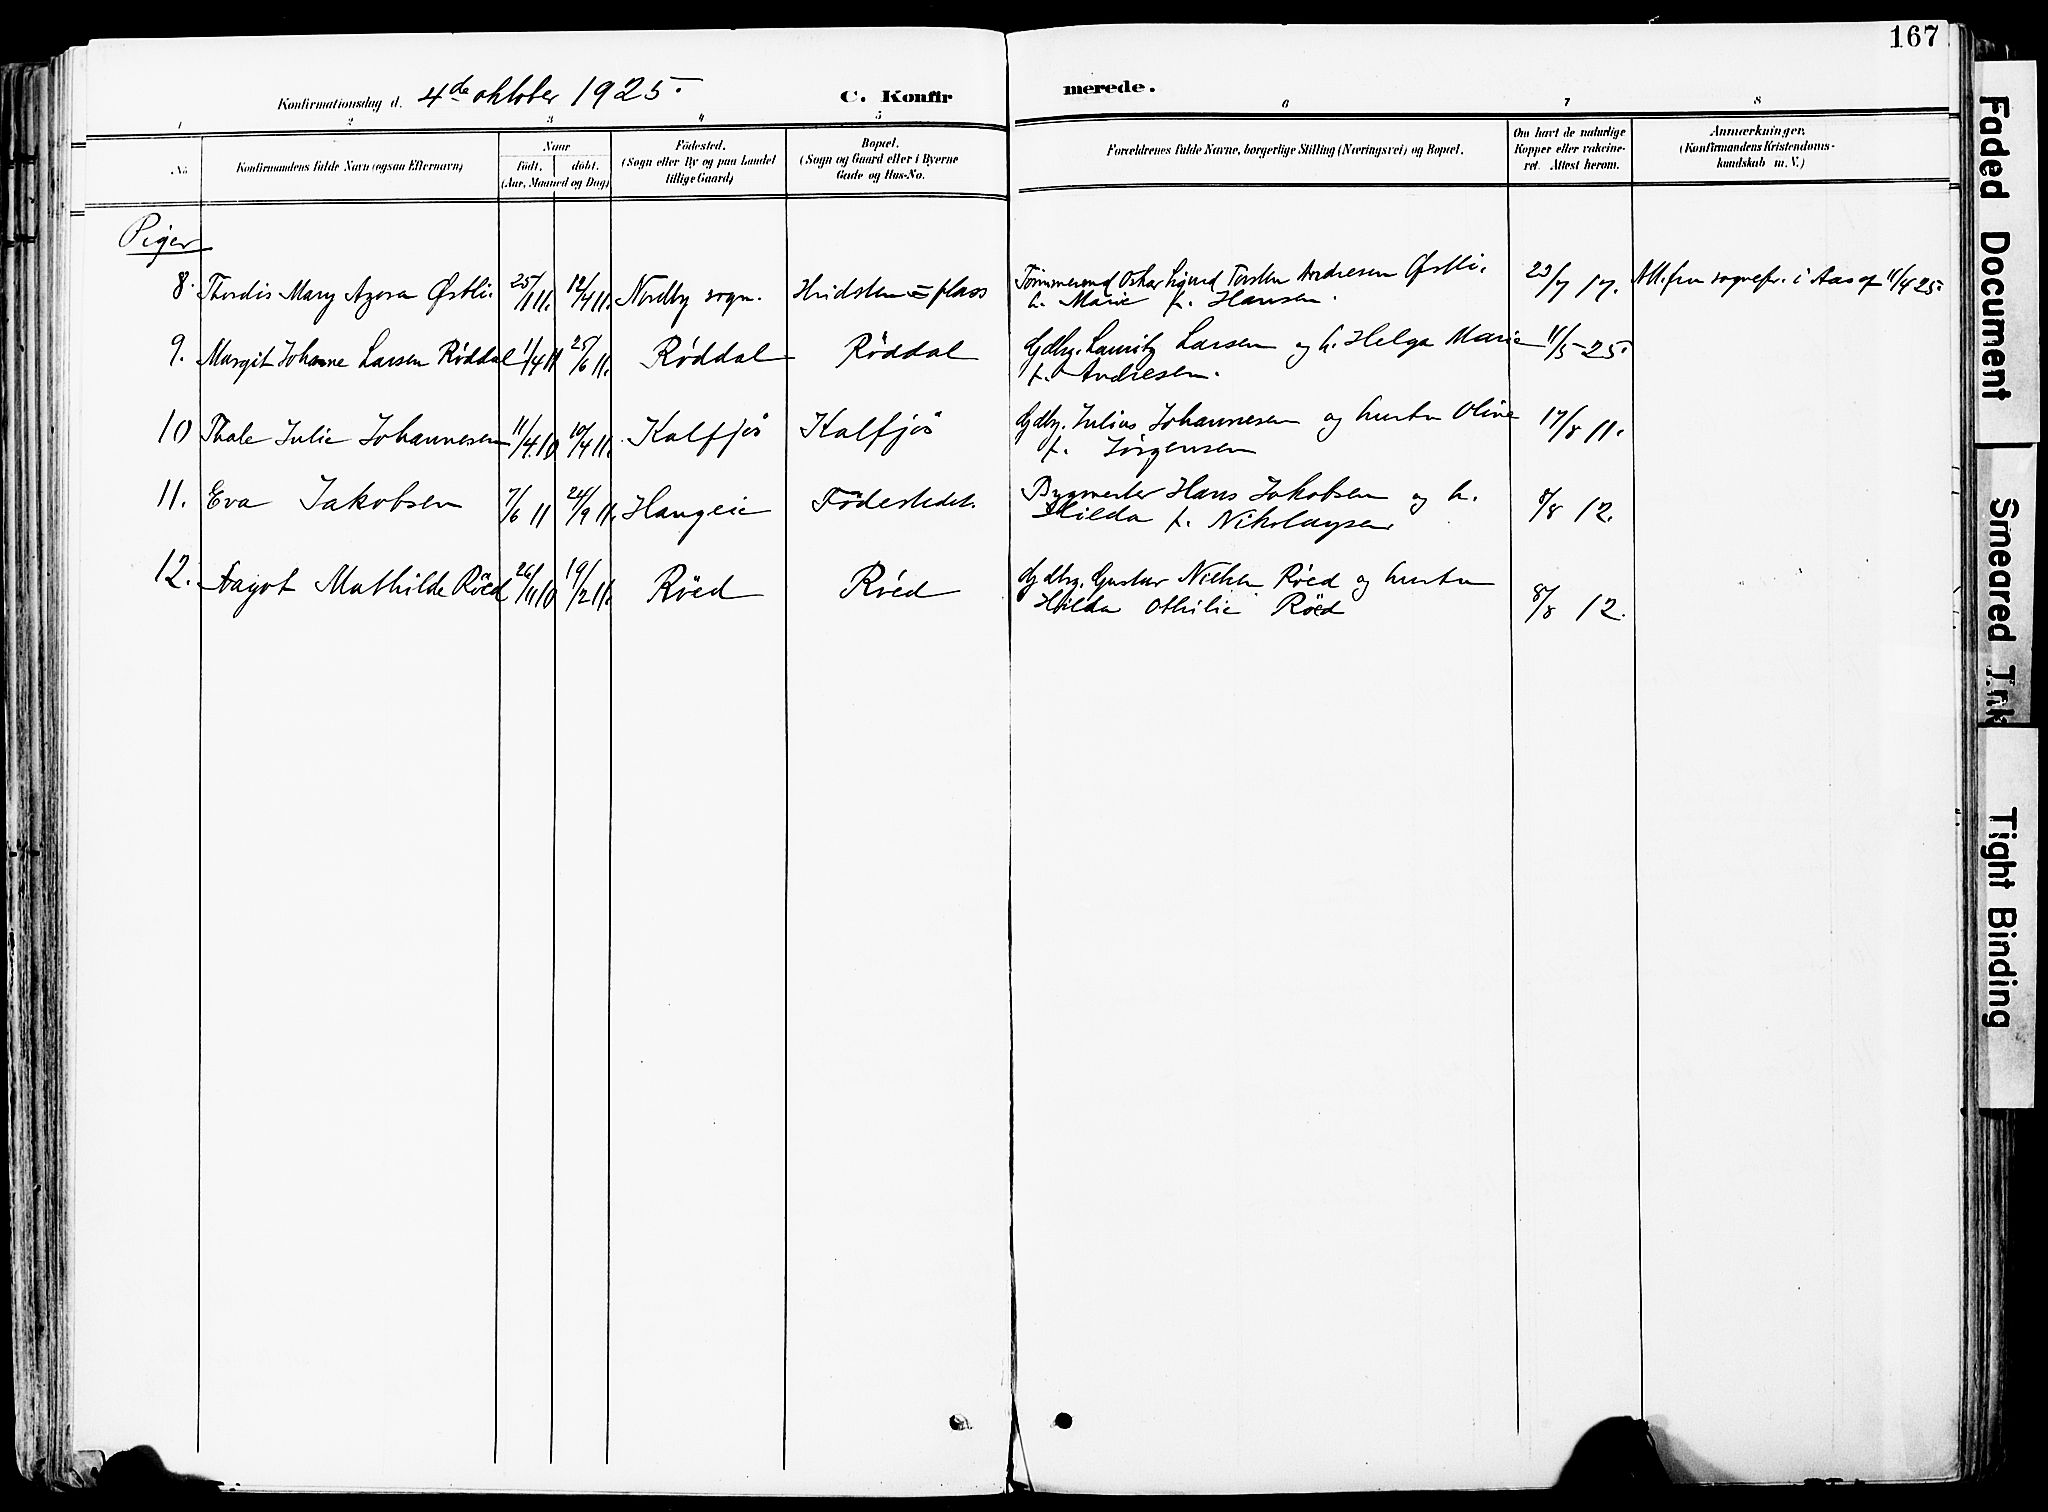 167
Konfirmationsdag d. 4de oktober 1925.
C. Konfirmerede.
1 2 3 4 5 6 7 8
No.
Konfirmandens fulde Navn (ogsaa Efternavn)
Naar
Födt. döbt.
(Aar, Maaned og Dag)
Födested.
(Sogn eller By og paa Landet
tillige Gaard)
Bopæl.
(Sogn og Gaard eller i Byerne
Gade og Hus-No.
Forældrenes fulde Navne, borgerlige Stilling (Næringsvei) og Bopæl.
Om havt de naturlige
Kopper eller vakcine-
ret. Attest herom.
Anmærkninger.
(Konfirmandens Kristendoms-
kundskab m. V.)
Piger
8. Thordis Mary Azora Østli. 25/1 11. 12/4 11. Nordby sogn. Hvidsten = plass Tømmermd Oskar Sigurd Torsten Andresen Østli.
h. Marie f. Hansen. 23/7 17. Att. fra sognepr. i Aas af 11/4 25.
9. Margit Johanne Larsen Røddal 11/4 11 25/6 11. Røddal Røddal Gdbr. Lauritz Larsen og h. Helga Marie
f. Andresen. 11/5 25.
10 Thale Julie Johannesen 11/4.10 10/4 11. Kalfjøs Kalfjøs Gdbr. Julius Johannesen og hustru Oline
f. Jørgensen 17/8 11.
11. Eva Jakobsen 7/6 11 24/9 11. Haugeie Födestedet. Bygmester Hans Jakobsen og h.
Hilda f. Nikolaysen 8/8 12.
12. Dagot Mathilde Røed 26/11 10 19/2 11. Røed Røed Gdbr. Gustav Nielsen Røed og hustru
Hilda Othilie Røed 8/8 12.
Faded Document
Smeared Ink
Tight Binding